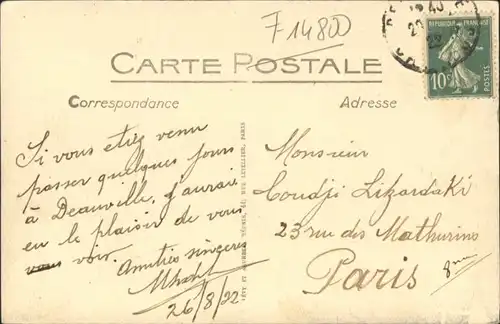 F 14800
RÉPUBLIQUE FRANÇAISE
10c
POSTES
CARTE POSTALE
Correspondance
Adresse
Si vous etiez venu
passer quelques jours
à Deauville, j'aurais
eu le plaisir de vous
vous voir.
Amitiés sincères
26/8/22
RUE LETELLIER, PARIS
Monsieur
Coudji Lizardaki
23 rue des Mathurins
Paris 8